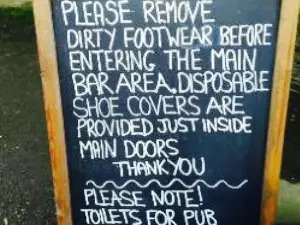 PLEASE REMOVE
DIRTY FOOTWEAR BEFORE
ENTERING THE MAIN
BAR AREA. DISPOSABLE
SHOE COVERS ARE
PROVIDED JUST INSIDE
MAIN DOORS
THANK YOU
PLEASE NOTE!
TOILETS FOR PUB